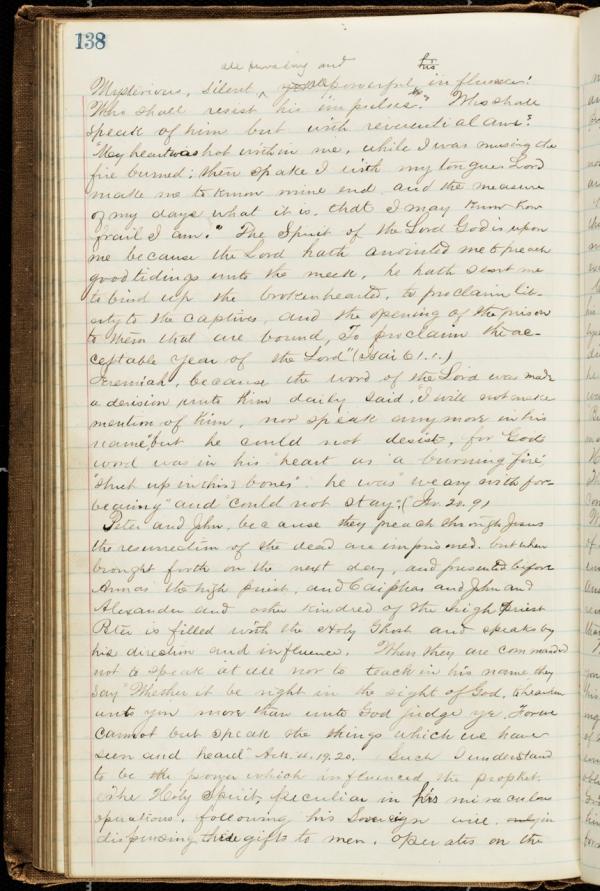 138
all pervading and
his
Mysterious, silent, powerful influence!
Who shall resist his impulses? Who shall
speak of him but with reverential awe?
"My heart was hot within me, while I was musing the
fire burned: then spake I with my tongue Lord
make me to know mine end and the measure
of my days what it is, that I may know how
frail I am." The Spirit of the Lord God is upon
me because the Lord hath anointed me to preach
good tidings unto the meek, he hath sent me
to bind up the brokenhearted, to proclaim lib-
erty to the captives, and the opening of the prison
to them that are bound, To proclaim the ac-
ceptable year of the Lord" (Isai 61.1.)
Jeremiah, because the word of the Lord was made
a derision unto him daily said, I will not make
mention of him, nor speak any more in his
name", but he could not desist, for God's
word was in his "heart as a burning fire,
"shut up in his bones" he was weary with for-
bearing" and "could not stay". (Jer. 20. 9)
Peter and John, because they preach through Jesus
the resurrection of the dead are imprisoned. but when
brought forth on the next day, and presented before
Annas the high priest, and Caiphas and John and
Alexander and other kindred of the high Priest
Peter is filled with the Holy Ghost and speaks by
his direction and influence. When they are commanded
not to speak at all nor to teach in his name, they
say "Whether it be right in the sight of God, to hearken
unto you more than unto God judge ye. For we
cannot but speak the things which we have
seen and heard" Acts. 4. 19. 20. Such I understand
to be the power which influenced the prophet.
The Holy Spirit, peculiar in his miraculous
operations, following his Sovereign will, in
dispensing these gifts to men, operates on the